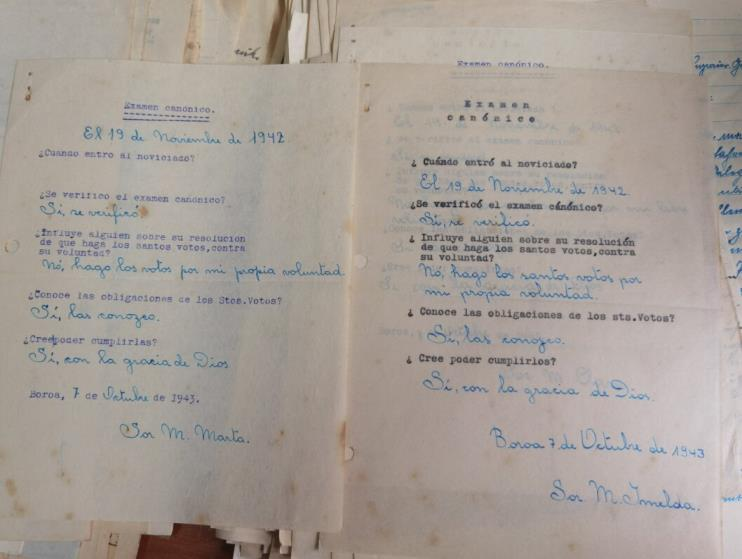 Examen canónico.
El 19 de Noviembre de 1942
¿Cuando entro al noviciado?
¿Se verifico el examen canónico?
Sí, se verificó
¿Influye alguien sobre su resolucion
de que haga los santos votos,contra
su voluntad?
Nó, hago los votos por mi propia voluntad
¿Conoce las obligaciones de los Stos.Votos?
Sí, las conozco.
¿Cree poder cumplirlas?
Sí, con la gracia de Dios
Boroa, 7 de Octubre de 1943.
Sor M. Marta.
Examen canónico.
Examen
canónico.
¿ Cuándo entró al noviciado?
El 19 de Noviembre de 1942
¿Se verificó el examen cánónico?
Sí, se verificó.
¿ Influye alguien sobre su resolución
de que haga los santos votos,contra
su voluntad?
Nó, hago los santos votos por
mi propia voluntad.
¿ Conoce las obligaciones de los sts.Votos?
Sí, las conozco.
¿ Cree poder cumplirlos?
Sí, con la gracia de Dios.
Boroa 7 de Octubre de 1943
Sor M. Imelda.